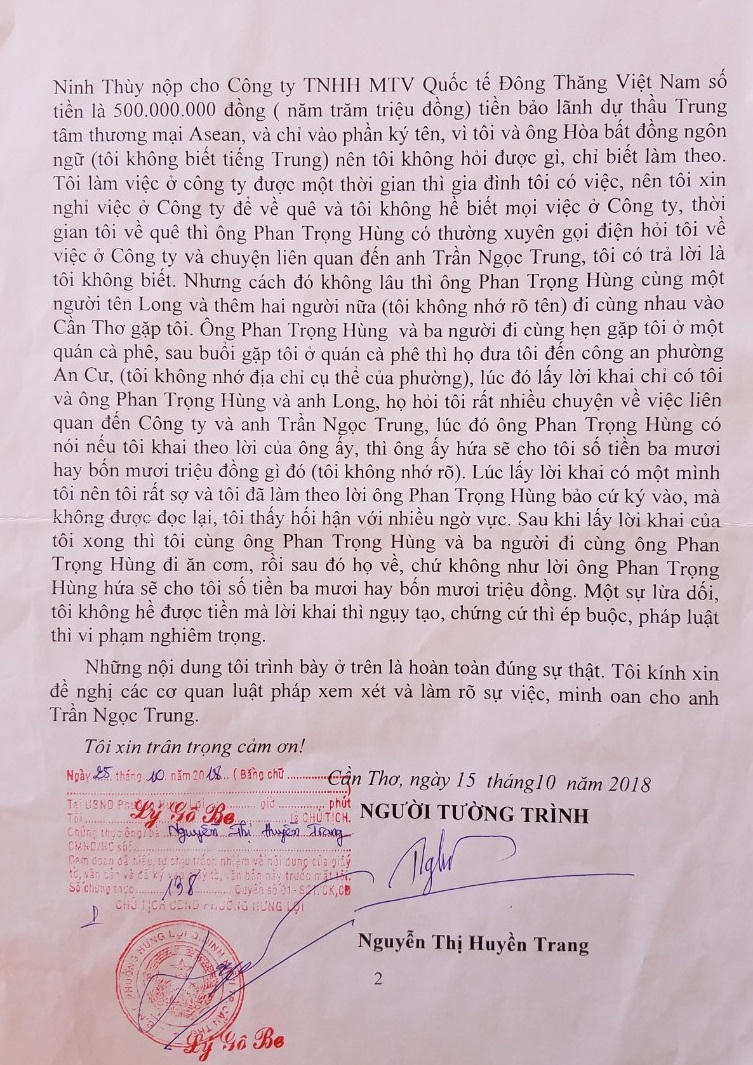 Ninh Thùy nộp cho Công ty TNHH MTV Quốc tế Đông Thăng Việt Nam số
tiền là 500.000.000 đồng ( năm trăm triệu đồng) tiền bảo lãnh dự thầu Trung
tâm thương mại Asean, và chỉ vào phần ký tên, vì tôi và ông Hòa bất đồng ngôn
ngữ (tôi không biết tiếng Trung) nên tôi không hỏi được gì, chỉ biết làm theo.
Tôi làm việc ở công ty được một thời gian thì gia đình tôi có việc, nên tôi xin
nghỉ việc ở Công ty để về quê và tôi không hề biết mọi việc ở Công ty, thời
gian tôi về quê thì ông Phan Trọng Hùng có thường xuyên gọi điện hỏi tôi về
việc ở Công ty và chuyện liên quan đến anh Trần Ngọc Trung, tôi có trả lời là
tôi không biết. Nhưng cách đó không lâu thì ông Phan Trọng Hùng cùng một
người tên Long và thêm hai người nữa (tôi không nhớ rõ tên) đi cùng nhau vào
Cần Thơ gặp tôi. Ông Phan Trọng Hùng và ba người đi cùng hẹn gặp tôi ở một
quán cà phê, sau buổi gặp tôi ở quán cà phê thì họ đưa tôi đến công an phường
An Cư, (tôi không nhớ địa chỉ cụ thể của phường), lúc đó lấy lời khai chỉ có tôi
và ông Phan Trọng Hùng và anh Long, họ hỏi tôi rất nhiều chuyện về việc liên
quan đến Công ty và anh Trần Ngọc Trung, lúc đó ông Phan Trọng Hùng có
nói nếu tôi khai theo lời của ông ấy, thì ông ấy hứa sẽ cho tôi số tiền ba mươi
hay bốn mươi triệu đồng gì đó (tôi không nhớ rõ). Lúc lấy lời khai có một mình
tôi nên tôi rất sợ và tôi đã làm theo lời ông Phan Trọng Hùng bảo cứ ký vào, mà
không được đọc lại, tôi thấy hối hận với nhiều ngờ vực. Sau khi lấy lời khai của
tôi xong thì tôi cùng ông Phan Trọng Hùng và ba người đi cùng ông Phan
Trọng Hùng đi ăn cơm, rồi sau đó họ về, chứ không như lời ông Phan Trọng
Hùng hứa sẽ cho tôi số tiền ba mươi hay bốn mươi triệu đồng. Một sự lừa dối,
tôi không hề được tiền mà lời khai thì ngụy tạo, chứng cứ thì ép buộc, pháp luật
thì vi phạm nghiêm trọng.
Những nội dung tôi trình bày ở trên là hoàn toàn đúng sự thật. Tôi kính xin
đề nghị các cơ quan luật pháp xem xét và làm rõ sự việc, minh oan cho anh
Trần Ngọc Trung.
Tôi xin trân trọng cảm ơn!
Cần Thơ, ngày 15 tháng10 năm 2018
NGƯỜI TƯỜNG TRÌNH
Nguyễn Thị Huyền Trang
2
Ngày 25 tháng 10 năm 2018 ( Bằng chữ
Tại UBND giờ phút
Tôi Lý Gô Be là CHỦ TỊCH.
Chứng thực ông/bà Nguyễn Thị Huyền Trang
Cam đoan đã hiểu, tự chịu trách nhiệm về nội dung của giấy
tờ, văn bản và đã ký văn bản này trước mặt tôi.
Số chứng thực 138 Quyển số 01 -
CHỦ TỊCH UBND PHƯỜNG HƯNG LỢI
PHƯỜNG HƯNG LỢI
Lý Gô Be